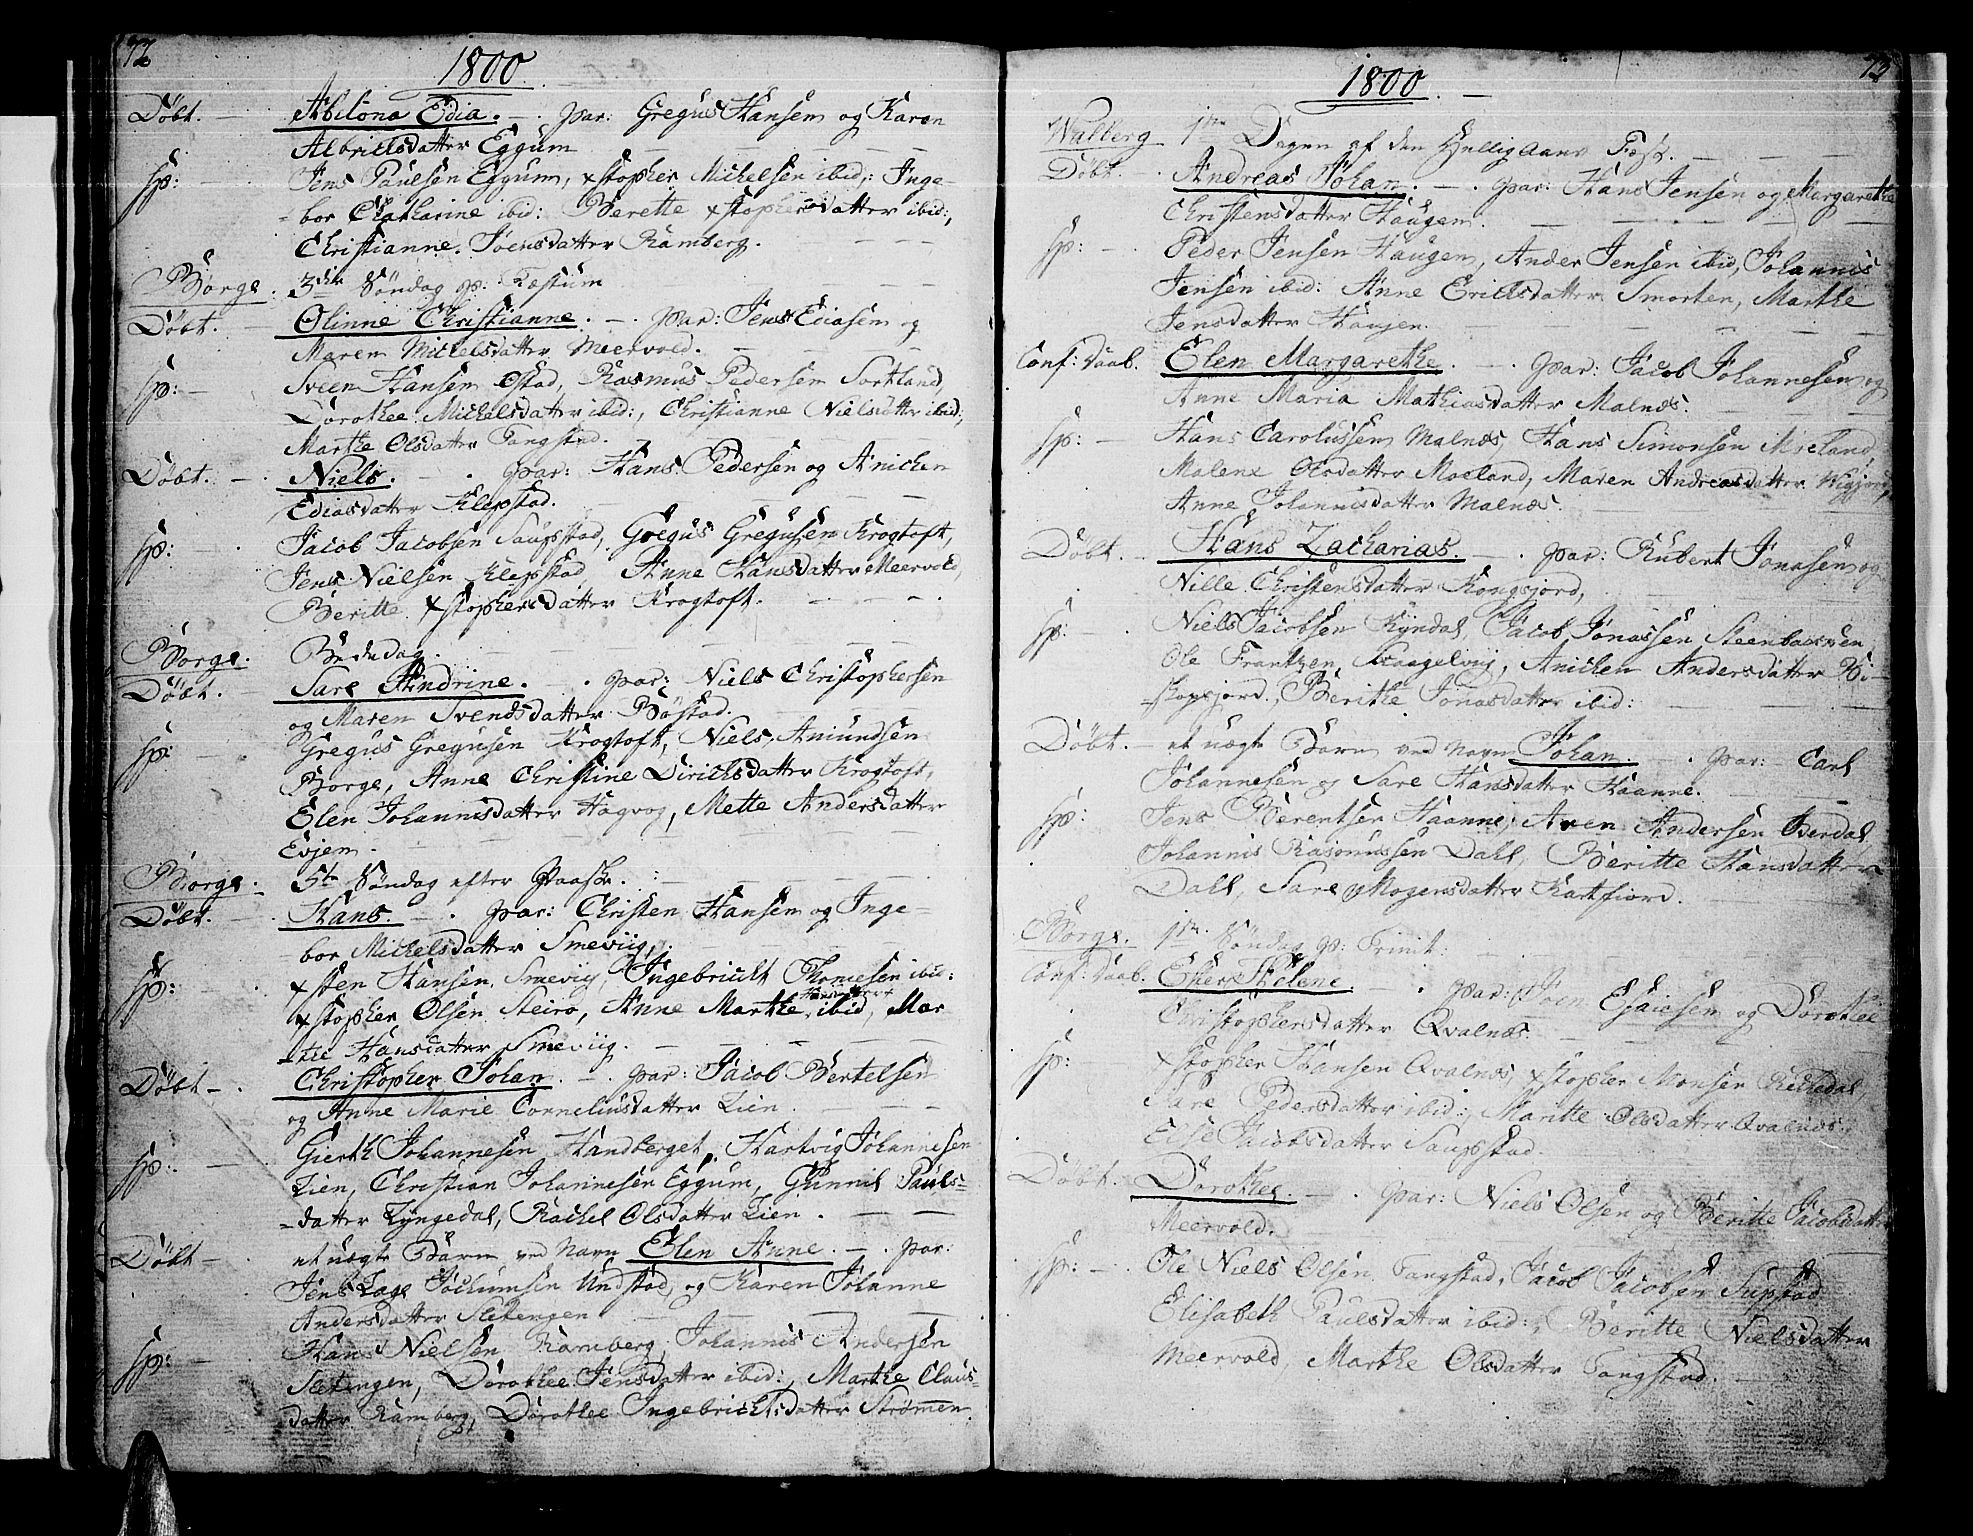 72
1800
Döbt. Abelona Edia. par: Gregus Hansen og Karen
Albriktsdatter Eggum
Sp: Jens Paulsen Eggum, xstopher Michelsen ibid,: Inge-
bor Chatharine ibid: Berette xstophersdatter ibid:,
Christianne Joensdatter Ramberg.
Borge. 3die Söndag p: Festum
Döbt. Olinne Christianne. par: Jens Ediasen og
Maren Michelsdatter Meervold.
Sp: Sveen Hansen Ostad, Rasmus Pedersen Sortland,
Dorothee Michelsdatter ibid:, Christianne Nielsdatter ibid;
Marthe Olsdatter Tangstad.
Döbt. Niels. par: Hans Pedersen og Anichen
Ediasdatter Klepstad.
Sp: Jacob Jacobsen Saupstad, Gregus Gregusen Krogtoft,
Jens Nielsen Klepstad, Anne Hansdatter Meervold,
Beritte xstophersdatter Krogtoft.
Borge. Bededag.
Döbt. Sare Andrine. par: Niels Christophersen
og Maren Svendsdatter Böstad.
Sp: Gregus Gregusen Krogtoft, Niels Amundsen
Borge, Anne Christine Dirichsdatter Krogtoft,
Elen Johannisdatter Hagvog, Mette Andersdatter
Evjen.
Borge. 5te Söndag efter Paask.
Döbt. Hans. par: Christen Hansen og Inge-
bor Michelsdatter Smeviig,
Sp: xsten Hansen Smeviig, Ingebricht Thomesen ibid:
xstopher Olsen Steiro, Anne Marthe Hansdatter ibid, Mar
the Hansdatter Smeviig.
Döbt Christopher Johan. par: Jacob Bertelsen
og Anne Marie Corneliusdatter Lien.
Sp: Gierth Johannesen Handberget, Hartvig Johannesen
Lien, Christian Johannesen Eggum, Gunnil Pauls-
datter Lyngedal, Rachel Olsdatter Lien.
Döbt et uægte Barn ved Navn Elen Anne. par:
Jens Lage Jochumsen Undstad, og Karen Johanne
Andersdatter Sletengen
Sp: Hans Nielsen Ramberg, Johannis Andersen
Sletengen, Dorothee Jensdatter ibid:, Marthe Claus-
datter Ramberg, Dorothee Ingebrichtsdatter Strömen.
73
1800.
Walberg 1te Dagen af den Hellig Aans Fæst.
Döbt. Andreas Johan. par: Hans Jensen og Margarethe
Christensdatter Haugen.
Sp: Peder Jensen Haugen, Ander Jensen ibid, Johannis
Jensen ibid: Anne Erichsdatter Smorten, Marthe
Jensdatter Haugen.
Conf: Daab. Elen Margarethe. par: Jacob Johannesen og
Anne Maria Mathiasdatter Malnæs.
Sp: Hans Carolussen Malnæs, Hans Simonsen Moeland,
Malene Olsdatter Moeland, Maren Andreasdatter
Anne Johannisdatter Malnæs.
Döbt. Hans Zacharias. par: Rubert Jonasen og
Nille Christensdatter Kongsjord,
Sp: Niels Jacobsen Ryndal, Jacob Jonassen Steenbacken
Ole Frantzen, Anichen Andersdatter Bi-
skopsjord, Berithe Jonasdatter ibid:
Döbt. et uægte Barn ved Navn Johan. par: Carl
Johannesen og Sare Hansdatter Haanne.
Sp: Jens Berentsen Haanne, Aren Andersen Berdal
Johannis Rasmussen Dahl, Beritte Hansdatter
Dahl, Sare Mogensdatter Kartfiord.
Borge. 1te Söndag p: Trinit:
Conf: Daab. Esther Helene. par: Joen Esaiesen og Dorothee
Christophersdatter Qvalnæs.
Sp: xstopher Hansen Qvalnæs, xstopher Monsen Rechedal,
Sare Pedersdatter ibid:, Maritte Olsdatter Qvalnæs,
Else Jacobsdatter Saupstad.
Döbt. Dorothee. par: Niels Olsen og Beritte Jacobsdatter
Meervold.
Sp: Ole Niels Olsen Tangstad, Jacob Jacobsen Supstad
Elisabeth Paulsdatter ibid:, Beritte Nielsdatter
Meervold Marthe Olsdatter Tangstad.